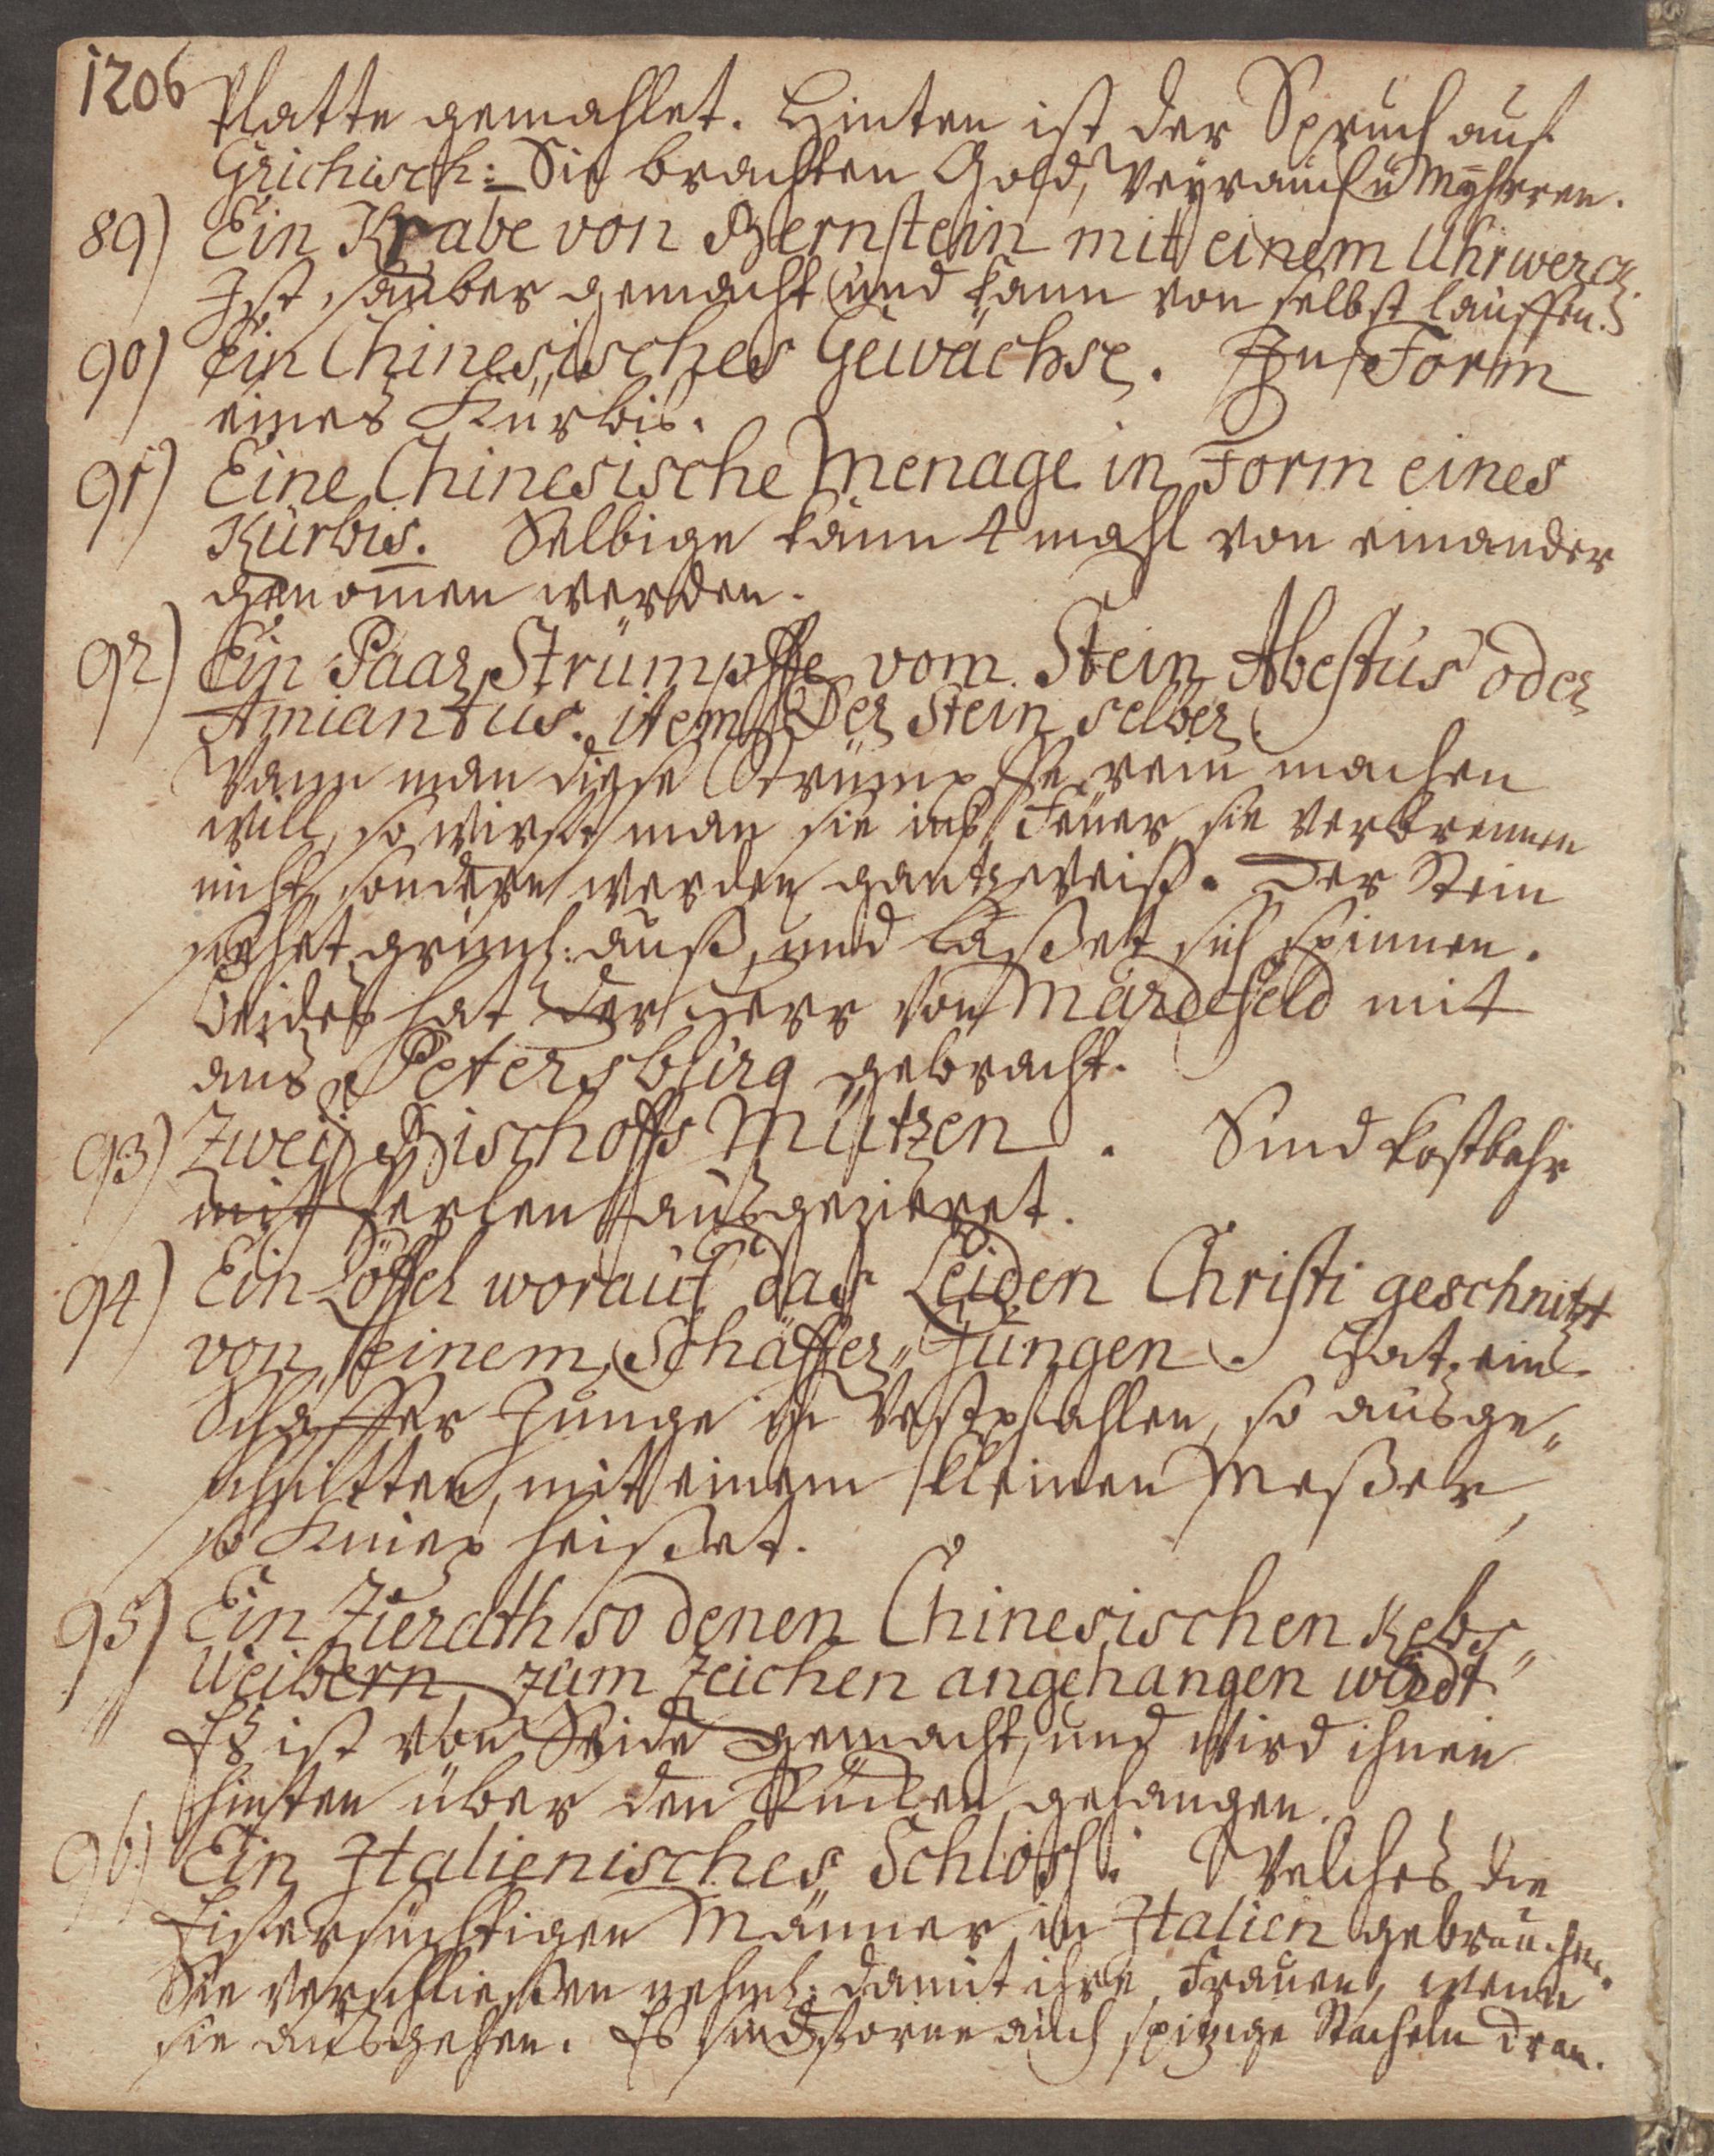 1206
Platte gemahlet. Hinten ist der Spruch auf
Grichisch: Sie brachten Gold, Weyrauch u Myhrren.
89) Ein Krabe von Bernstein mit einem Uhrwerck.
Ist sauber gemacht und kann von selbst lauffen.
90) Ein Chinesisches Gewächse. In Form
eines Kürbis.
91) Eine Chinesische Menage in Form eines
Kürbis. Selbige kann 4 mahl von einander
genom̄en werden.
92) Ein Paar Strümpffe vom Stein Abestus oder
Amiantus. item Der Stein selber.
Wann man diese Strümpffe rein machen
will, so wirfft man sie ins Feuer, sie verbrennen
nicht, sondern werden gantz weiß. Der Stein
siehet grünl: auß, und laßet sich spinnen.
Beides hat der Herr von Mardefeld mit
aus Petersburg gebracht.
93) Zweij Bischoffs Mützen. Sind kostbahr
mit Perlen ausgezieret.
94) Ein Löffel worauf das Leiden Christi geschnitzt
von einem Schäffer„Jungen. Hat ein
Schäffer Junge in Westphahlen, so ausge„
schnitten, mit einem kleinen Meßer,
so Kniep heißet.
95) Ein Zierath so denen Chinesischen Kebs„
Weibern zum Zeichen angehangen wirdt
Es ist von Seide gemacht, und wird ihnen
hinten über den Rücken gehangen.
96) Ein Italienisches Schloß. Welches die
Eifersüchtigen Männer in Italien gebrauchen.
Sie verschließen nehml: damit ihre Frauen, wenn
sie ausgehen. Es sind forne auch spitzige Stacheln dran.